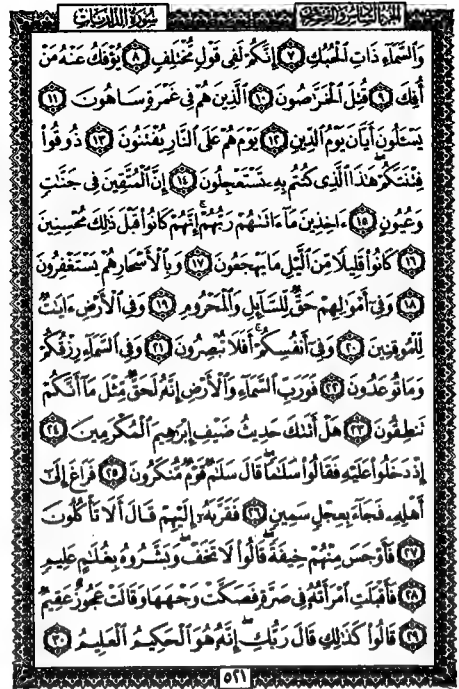 سورة الذاريات الجزء السادس والعشرون
وَالسَّمَآءِ ذَاتِ الْحُبُكِ ٧ إِنَّكُمْ لَفِي قَوْلٍ مُّخْتَلِفٍ ٨ يُؤْفَكُ عَنْهُ مَنْ
أُفِكَ ٩ قُتِلَ الْخَرَّاصُونَ ١٠ الَّذِينَ هُمْ فِي غَمْرَةٍ سَاهُونَ ١١
يَسْـَٔلُونَ أَيَّانَ يَوْمُ الدِّينِ ١٢ يَوْمَ هُمْ عَلَى النَّارِ يُفْتَنُونَ ١٣ ذُوقُوا۟
فِتْنَتَكُمْ هَٰذَا الَّذِي كُنتُم بِهِۦ تَسْتَعْجِلُونَ ١٤ إِنَّ الْمُتَّقِينَ فِي جَنَّٰتٍ
وَعُيُونٍ ١٥ ءَاخِذِينَ مَآ ءَاتَىٰهُمْ رَبُّهُمْ ۚ إِنَّهُمْ كَانُوا۟ قَبْلَ ذَٰلِكَ مُحْسِنِينَ
١٦ كَانُوا۟ قَلِيلًا مِّنَ الَّيْلِ مَا يَهْجَعُونَ ١٧ وَبِالْأَسْحَارِ هُمْ يَسْتَغْفِرُونَ
١٨ وَفِيٓ أَمْوَٰلِهِمْ حَقٌّ لِّلسَّآئِلِ وَالْمَحْرُومِ ١٩ وَفِي الْأَرْضِ ءَايَٰتٌ
لِّلْمُوقِنِينَ ٢٠ وَفِيٓ أَنفُسِكُمْ ۚ أَفَلَا تُبْصِرُونَ ٢١ وَفِي السَّمَآءِ رِزْقُكُمْ
وَمَا تُوعَدُونَ ٢٢ فَوَرَبِّ السَّمَآءِ وَالْأَرْضِ إِنَّهُۥ لَحَقٌّ مِّثْلَ مَآ أَنَّكُمْ
تَنطِقُونَ ٢٣ هَلْ أَتَىٰكَ حَدِيثُ ضَيْفِ إِبْرَٰهِيمَ الْمُكْرَمِينَ ٢٤
إِذْ دَخَلُوا۟ عَلَيْهِ فَقَالُوا۟ سَلَٰمًا ۖ قَالَ سَلَٰمٌ قَوْمٌ مُّنكَرُونَ ٢٥ فَرَاغَ إِلَىٰٓ
أَهْلِهِۦ فَجَآءَ بِعِجْلٍ سَمِينٍ ٢٦ فَقَرَّبَهُۥٓ إِلَيْهِمْ قَالَ أَلَا تَأْكُلُونَ
٢٧ فَأَوْجَسَ مِنْهُمْ خِيفَةً ۖ قَالُوا۟ لَا تَخَفْ ۖ وَبَشَّرُوهُ بِغُلَٰمٍ عَلِيمٍ
٢٨ فَأَقْبَلَتِ امْرَأَتُهُۥ فِي صَرَّةٍ فَصَكَّتْ وَجْهَهَا وَقَالَتْ عَجُوزٌ عَقِيمٌ
٢٩ قَالُوا۟ كَذَٰلِكِ قَالَ رَبُّكِ ۖ إِنَّهُۥ هُوَ الْحَكِيمُ الْعَلِيمُ ٣٠
٥٢١